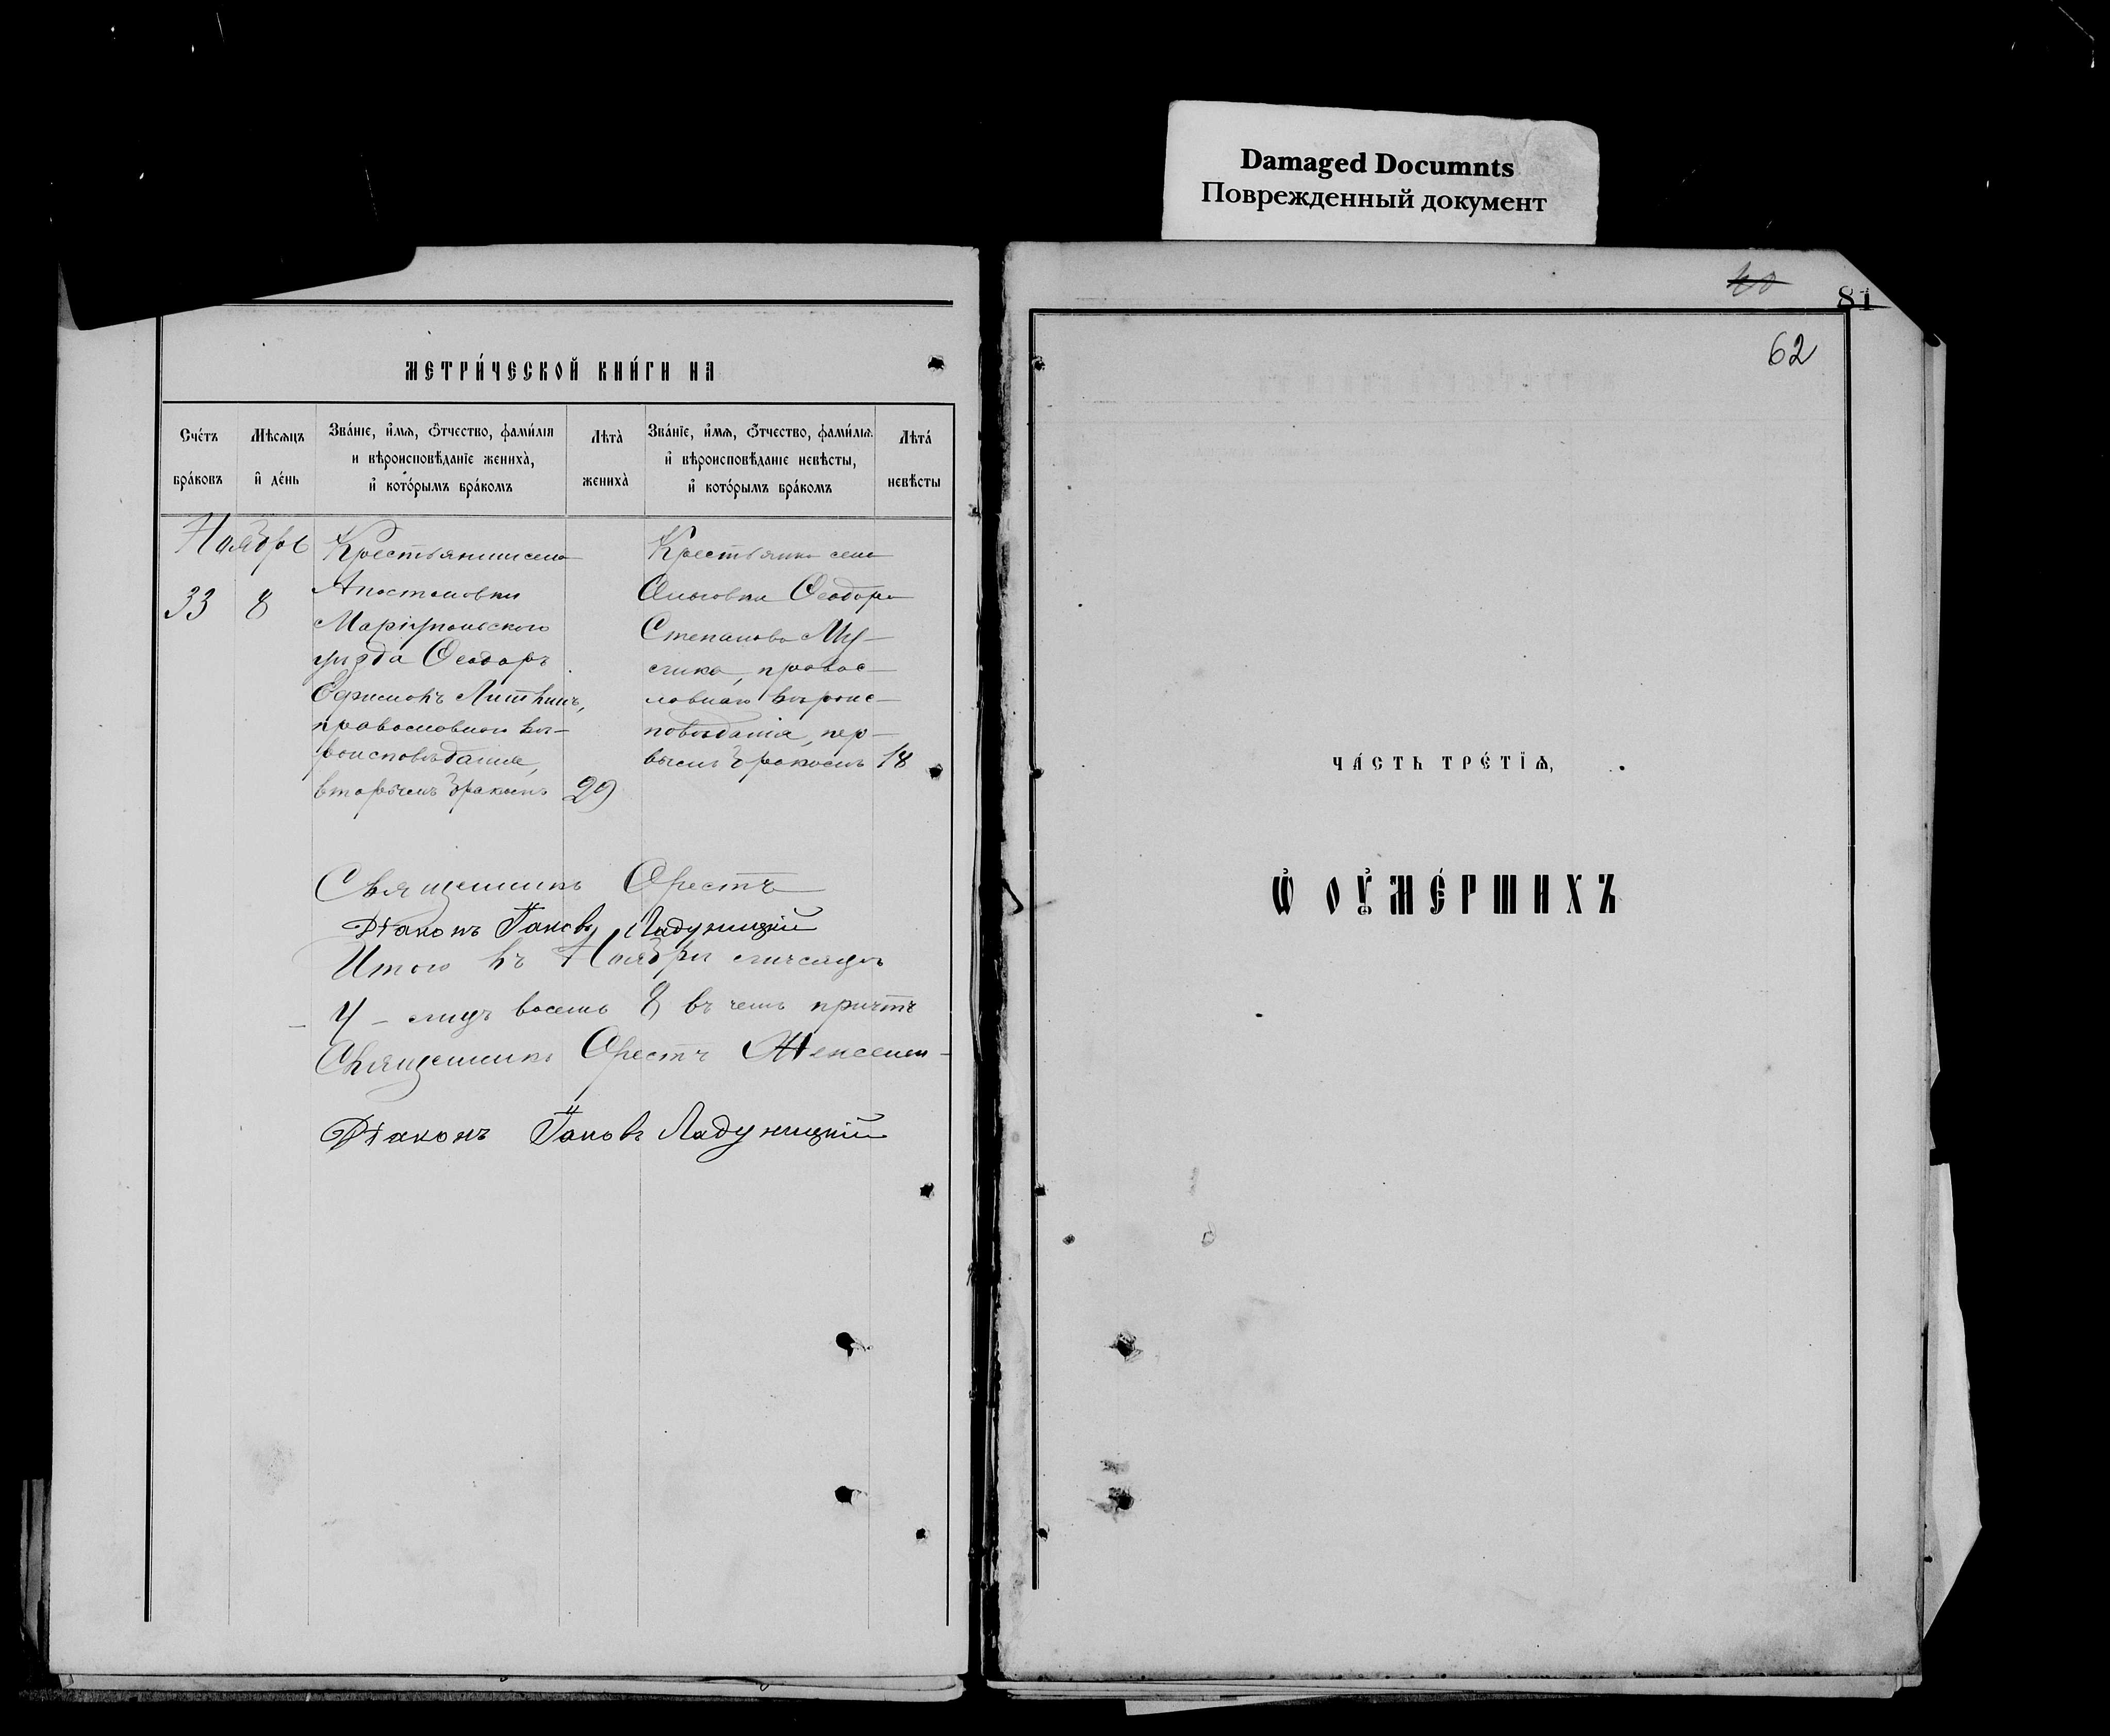 Damaged Documnts
Поврежденный документ
МЕТРИ́ЧЕСКОЙ КНИ́ГИ НА
Сче́тъ бра́ковъ
Мѣсѧцъ и҆ де́нь
Зва́нїе, и҆́мѧ, ѻ҆́тчество, фами́лїѧ и вѣроисповѣ́данїе жениха̀, и҆ кото́рымъ бра́комъ
Лѣта̀ жениха̀
Зва́нїе, и҆́мѧ, ѻ҆́тчество, фами́лїѧ и҆ вѣроисповѣ́данїе невѣ́сты, и҆ кото́рымъ бра́комъ
Лѣта́ невѣ́сты
Ноябрь
33 8
Крестьянинъ села
Апостоловки
Маріупольскаго
уѣзда Ѳеодоръ
Ефимовъ Литвинъ,
православнаго вѣ-
роисповѣданія,
вторымъ бракомъ 29
Крестьянка села
Ѳеодора
Степанова
право-
славнаго вѣроис-
повѣданія, пер-
вымъ бракомъ 18
Священникъ Орестъ
Діаконъ Іаковъ Ладуницкій
Итого въ Ноябрѣ мѣсяцѣ
восемь 8 въ чемъ причтъ
Священникъ Орестъ
Діаконъ Іаковъ Ладуницкій
40
81
62
ЧА́СТЬ ТРЕ́ТІѦ,
Ѡ҆ ОУ҆МЕ́РШИХЪ